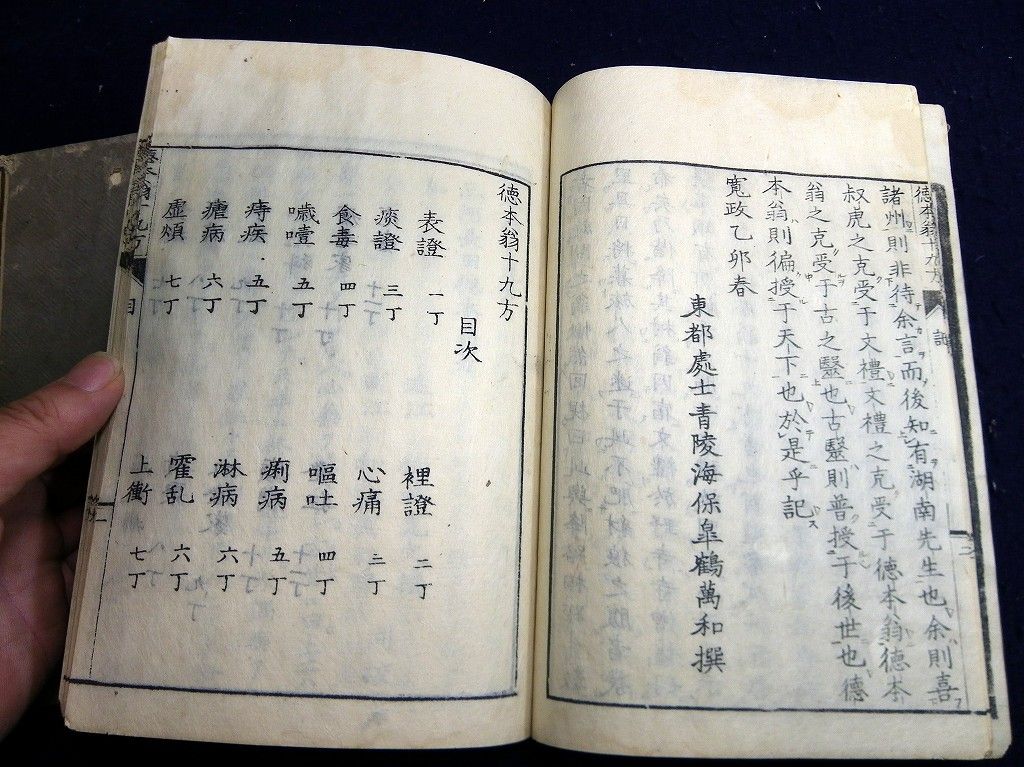 德本翁十九方
諸州則非待余言而後知有湖南先生也余則喜
叔虎之克受于文禮文禮之克受于德本翁德本
翁之克受于古之醫也古醫則普授于後世也德
本翁則徧授于天下也於是乎記
寬政乙卯春
東都處士青陵海保皐鶴萬和撰
德本翁十九方
目次
表證 一丁
裡證 二丁
痰證 三丁
心痛 三丁
食毒 四丁
嘔吐 四丁
噦噎 五丁
痢病 五丁
痔疾 五丁
淋病 六丁
癰病 六丁
霍乱 六丁
虛煩 七丁
上衝 七丁
目